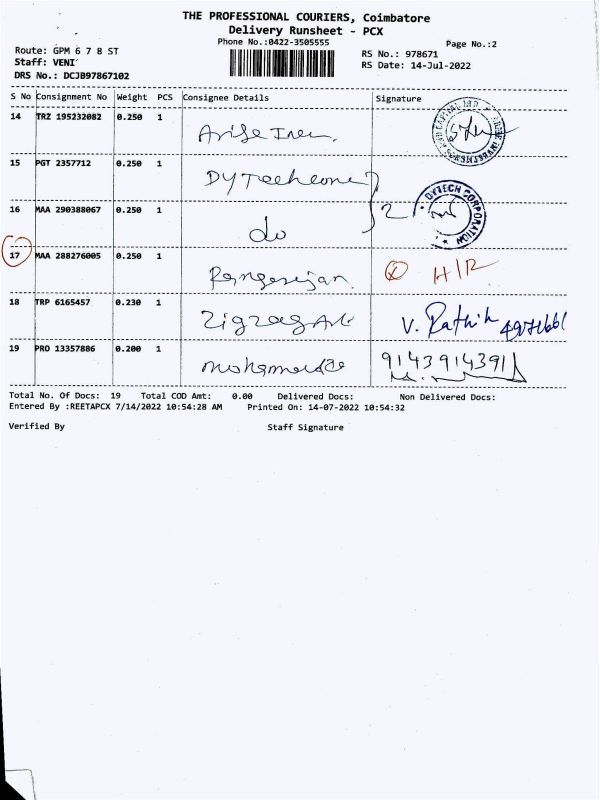 THE PROFESSIONAL COURIERS, Coimbatore
Delivery Runsheet - PCX
Phone No.:0422-3505555
Page No.:2
Route: GPM 6 7 8 ST
RS No.: 978671
Staff: VENI
RS Date: 14-Jul-2022
DRS No.: DCJB97867102
S No Consignment No Weight PCS Consignee Details Signature
14 TRZ 195232082 0.250 1
15 PGT 2357712 0.250 1
DYTECH CORPORATION
16 MAA 290388067 0.250 1 do 2
17 MAA 288276005 0.250 1 Rangarajan H/R
18 TRP 6165457 0.230 1 Zigzag V. Rathik
19 PRO 13357886 0.200 1 91439 14391
Total No. Of Docs: 19 Total COD Amt: 0.00 Delivered Docs: Non Delivered Docs:
Entered By :REETAPCX 7/14/2022 10:54:28 AM Printed On: 14-07-2022 10:54:32
Verified By Staff Signature